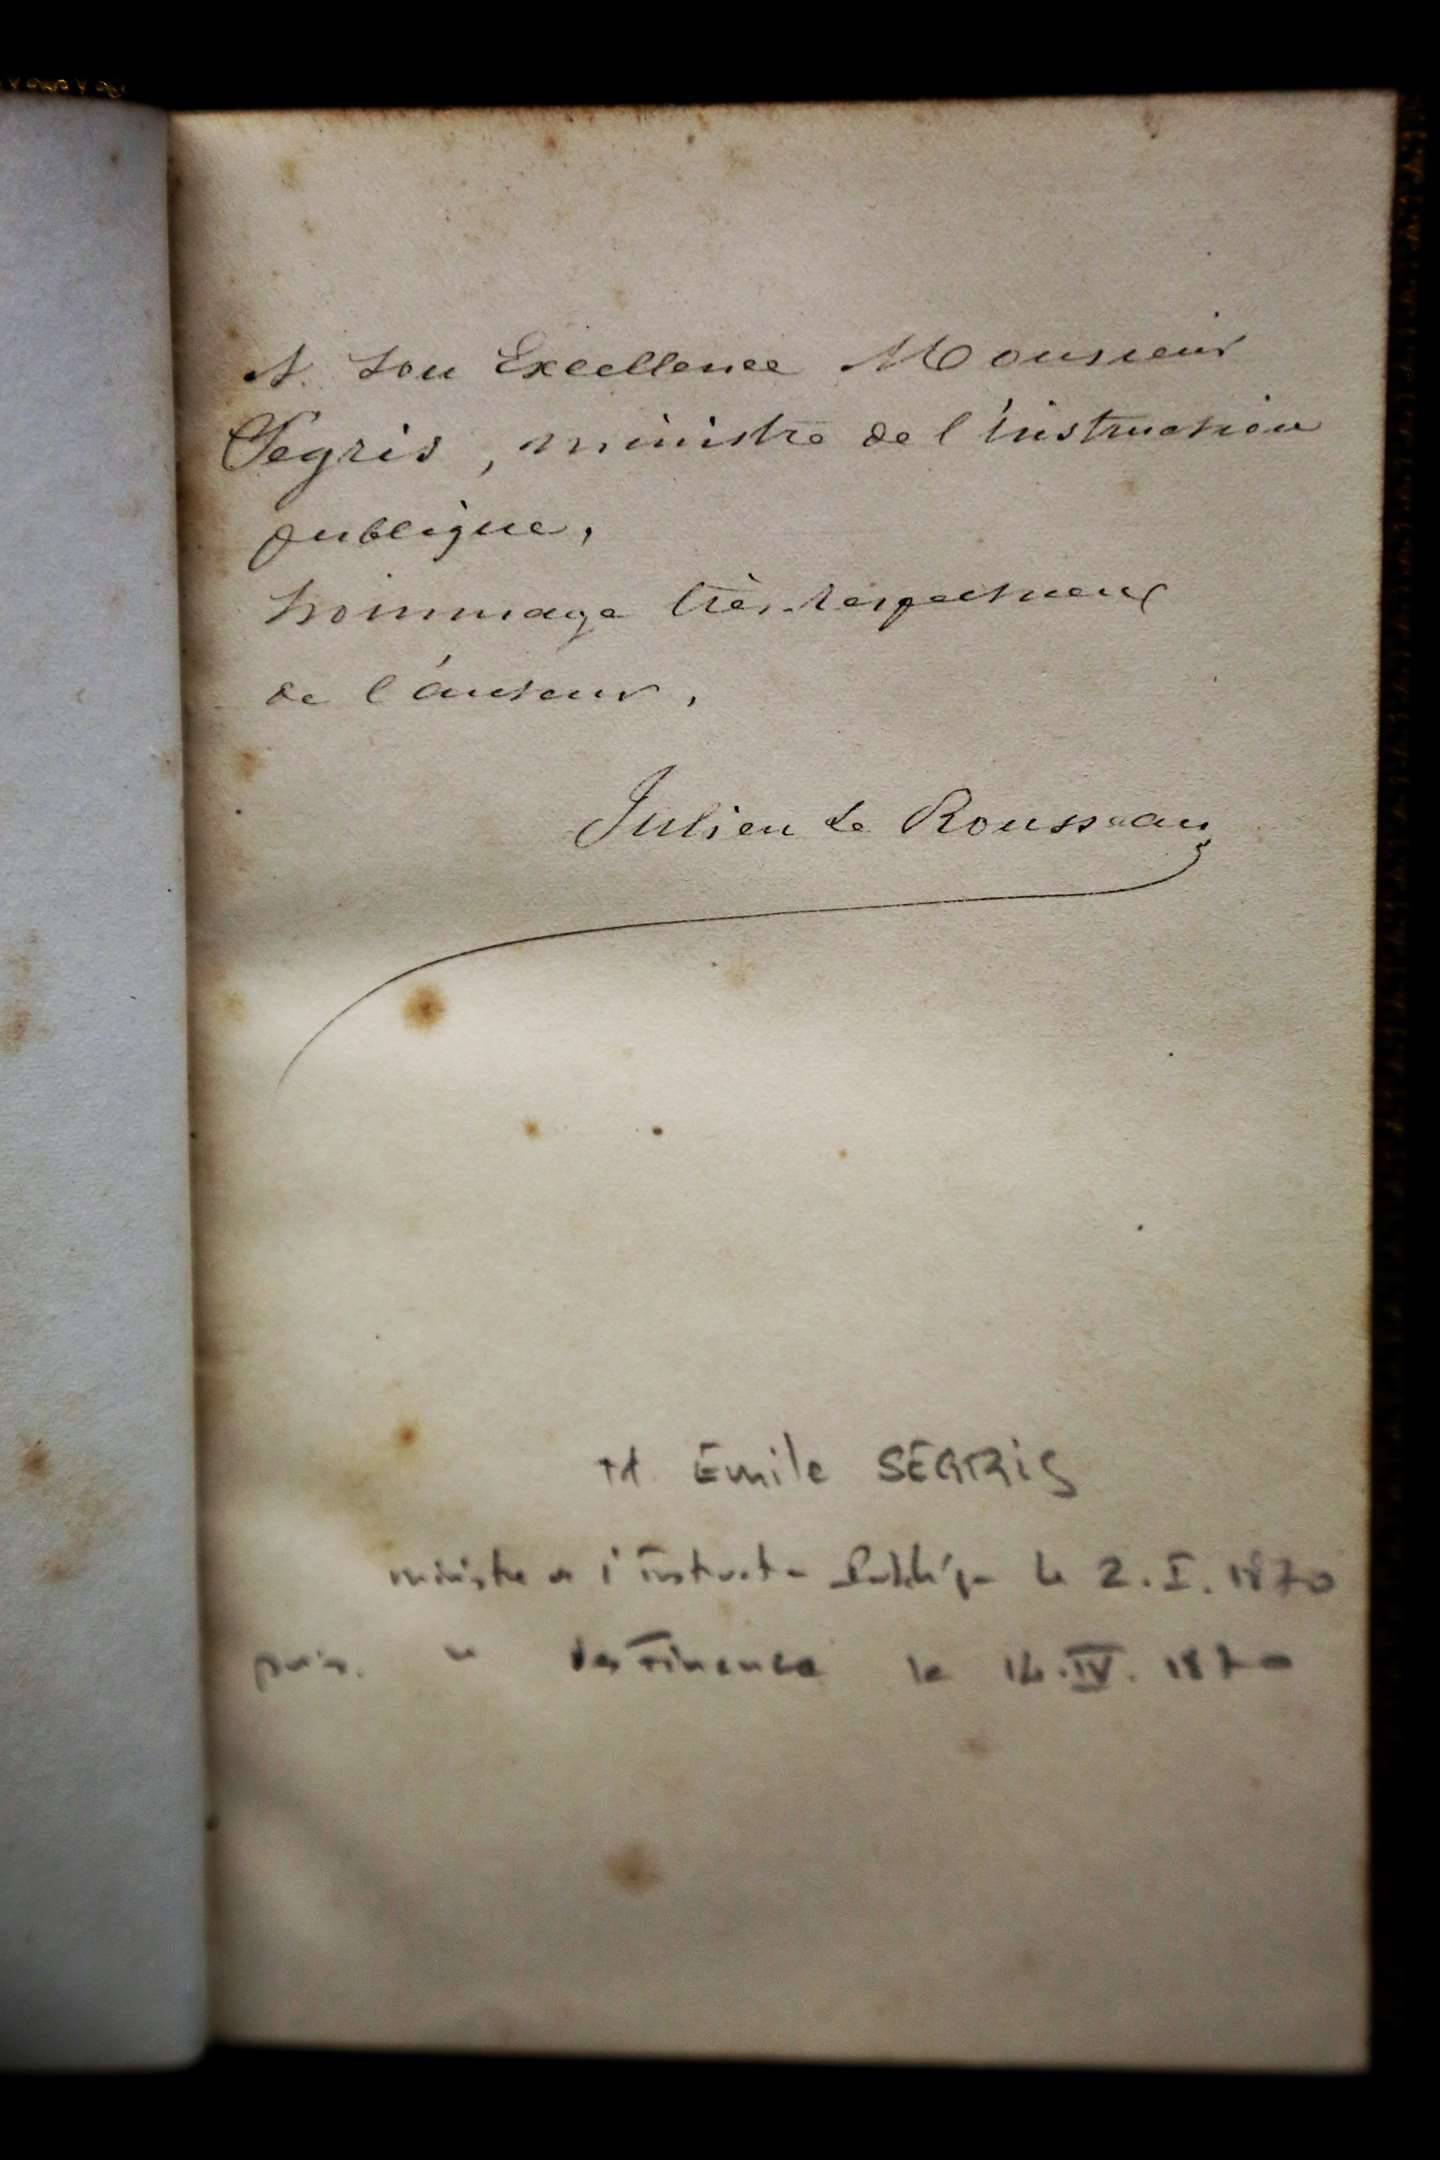 A. Son Excellence Monsieur
Segris, ministre de l'instruction
publique,
hommage très-respectueux
de l'auteur,
Julien Le Rousseau
M Emile SEGRIS
ministre de l'Instruct- Publiq- le 2.I.1870
puis. " des Finances le 14.IV.1870